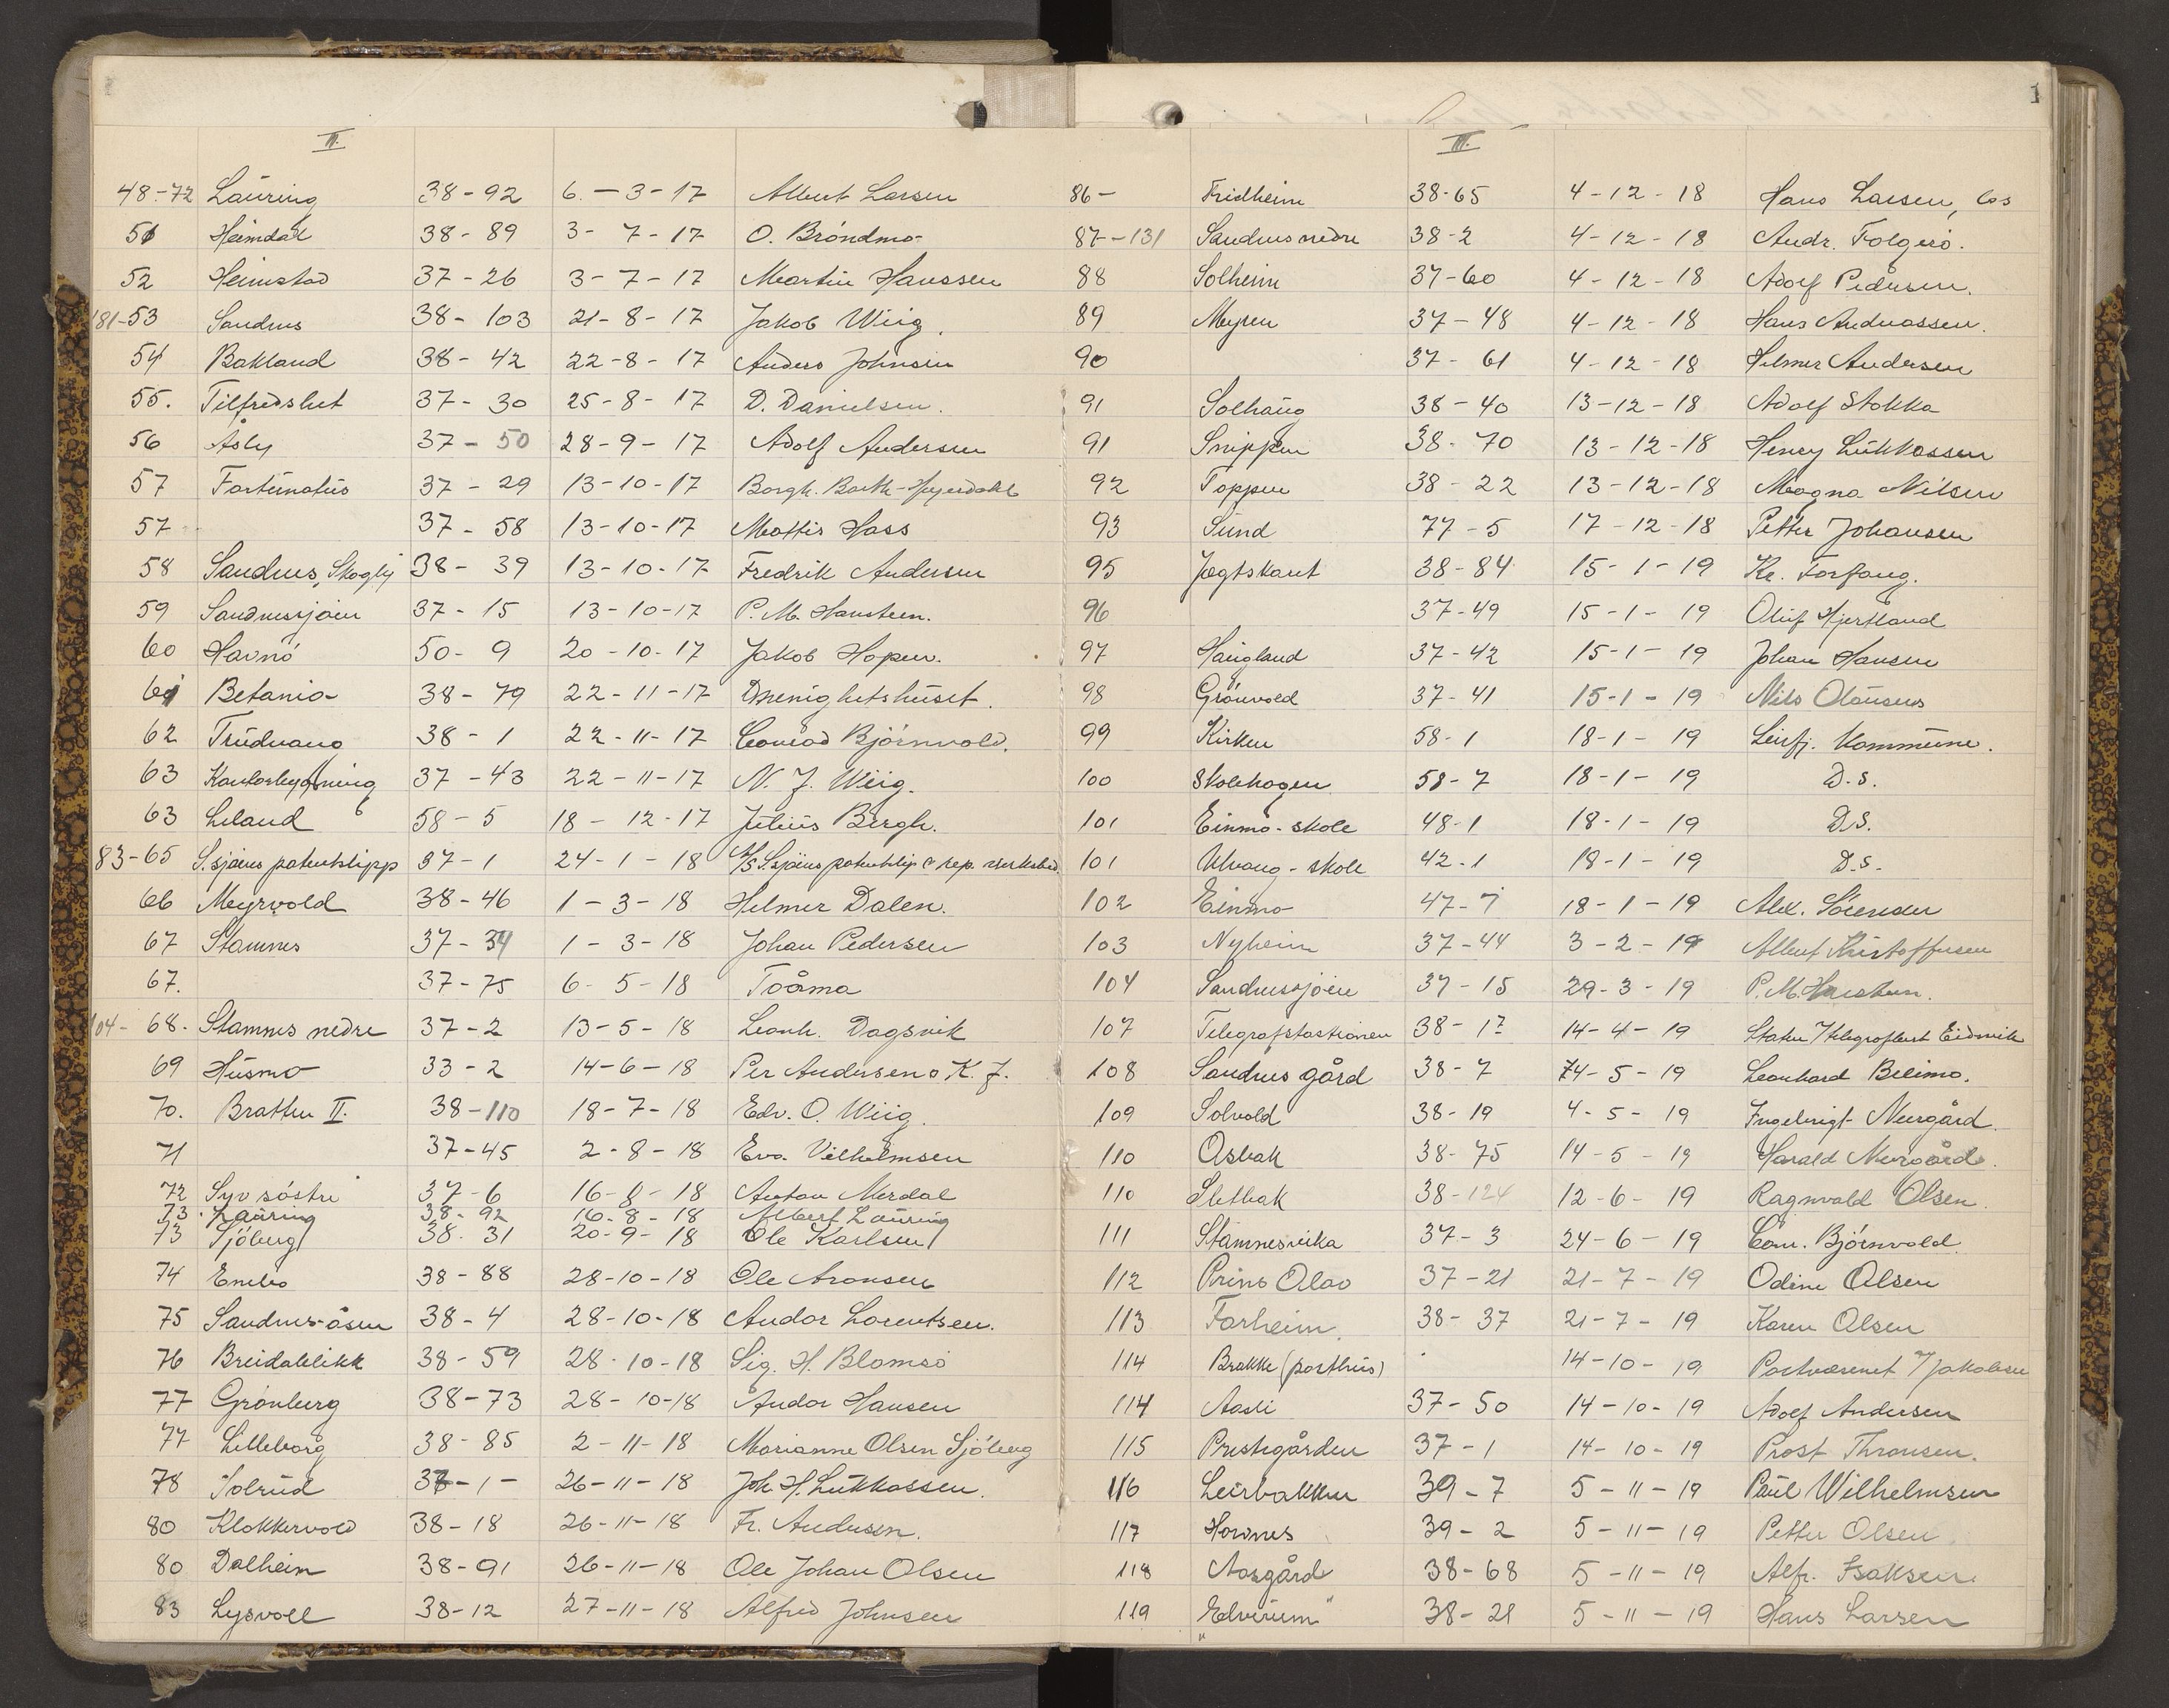 II.
48-72 Lauring 38-92 6-3-17 Albert Larsen
51 Heimdal 38-89 3-7-17 O. Bröndmo
52 Heimstad 37-26 3-7-17 Martin Hanssen
181-53 Sandnes 38-103 21-8-17 Jakob Wiig.
54 Bakland 38-42 22-8-17 Anders Johnsen
55. Tilfredshet 37-30 25-8-17 D. Danielsen.
56 Åsly 37-50 28-9-17 Adolf Andersen
57 Fortunatus 37-29 13-10-17 Borgh. Barth-Heyerdahl
57 37-58 13-10-17 Mattis Hass
58 Sandnes, Skogly 38-39 13-10-17 Fredrik Andersen
59 Sandnessjöen 37-15 13-10-17 P. M. Hansteen.
60 Havnö 50-9 20-10-17 Jakob Hopen.
61 Betania 38-79 22-11-17 Menighetshuset.
62 Trudvang 38-1 22-11-17 Conrad Björnvold.
63 Kontorbygning 37-43 22-11-17 N. J. Wiig.
63 Leland 58-5 18-12-17 Julius Bergh.
83-65 S.sjöens patentslipp 37-1 24-1-18 A/S S.sjöens patentslip & rep. verksted.
66 Meyrvold 38-46 1-3-18 Helmer Dalen.
67 Stamnes 37-34 1-3-18 Johan Pedersen
67. 37-75 6-5-18 Toåma
104-68. Stamnes nedre 37-2 13-5-18 Leonh. Dagsvik
69 Husmo 33-2 14-6-18 Per Andersen o K. J.
70. Bratten II. 38-110 18-7-18 Edv. O. Wiig.
71 37-45 2-8-18 Eva Vilhelmsen
72 Syv söstre 37-6 16-8-18 Anton Merdal
73. Lauring 38-92 16-8-18 Albert Lauring
73 Sjöberg 38-31 20-9-18 Ole Karlsen
74 Enebo 38-88 28-10-18 Ole Aronsen
75 Sandnes-åsen 38-4 28-10-18 Andor Lorentsen.
76 Breidablikk 38-59 28-10-18 Sig. H. Blomsö
77 Grönberg 38-73 28-10-18 Andor Hansen
77 Lilleborg 38-85 2-11-18 Marianne Olsen Sjöberg
78 Solrud 38-1- 26-11-18 Joh. H. Lukkassen.
80 Klokkervold 38-18 26-11-18 Fr. Andersen.
80 Dalheim 38-91 26-11-18 Ole Johan Olsen
83 Lysvoll 38-12 27-11-18 Alfred Johnsen
1
III.
86- Fridheim 38-65 4-12-18 Hans Larsen, los
87-131 Sandnes nedre 38-2 4-12-18 Andr. Folgerö.
88 Solheim 37-60 4-12-18 Adolf Pedersen.
89 Myren 37-48 4-12-18 Hans Andreassen.
90 37-61 4-12-18 Helmer Andersen
91 Solhaug 38-40 13-12-18 Adolf Stokka
91 Snippen 38-70 13-12-18 Henry Lukkassen
92 Toppen 38-22 13-12-18 Magna Nilsen
93 Sund 77-5 17-12-18 Petter Johansen
95 Jægtskant 38-84 15-1-19 Kr. Forfang.
96 37-49 15-1-19 Oluf Hjertland
97 Haugland 37-42 15-1-19 Johan Hansen
98 Grönvold 37-41 15-1-19 Nils Olausens
99 Kirken 58-1 18-1-19 Leirfj. Kommune.
100 Skolehagen 58-7 18-1-19 D.s.
101 Einmo-skole 48-1 18-1-19 D.S.
101 Ulvang-skole 42-1 18-1-19 D.s.
102 Einmo 47-7 18-1-19 Alex. Sörensen
103 Nyheim 37-44 3-2-19 Albert Kristoffersen
104 Sandnessjöen 37-15 29-3-19 P. M. Hansteen.
107 Telegrafstationen 38-17 14-4-19 Staten v/telegrafbest Eidsvik
108 Sandnes gård 38-7 24-5-19 Leonhard Breimo.
109 Solvold 38-19 4-5-19 Ingebrigt Neergård.
110 Osbak 38-75 14-5-19 Harald Neergård.
110 Sletbak 38-124 12-6-19 Ragnvald Olsen.
111 Stamnesvika 37-3 24-6-19 Conr. Björnvold.
112 Prins Olav 37-21 21-7-19 Odine Olsen
113 Forheim. 38-37 21-7-19 Karen Olsen
114 Brakke (posthus) 14-10-19 Postvæsenet v/Jakobsen
114 Aasli 37-50 14-10-19 Adolf Andersen
115 Prestegården 37-1 14-10-19 Prost Thronsen.
116 Leirbakken 39-7 5-11-19 Paul Wilhelmsen
117 Hornnes 39-2 5-11-19 Petter Olsen
118 Aasgård 38-68 5-11-19 Alfr. Isaksen.
119 "Elverum" 38-21 5-11-19 Hans Larsen